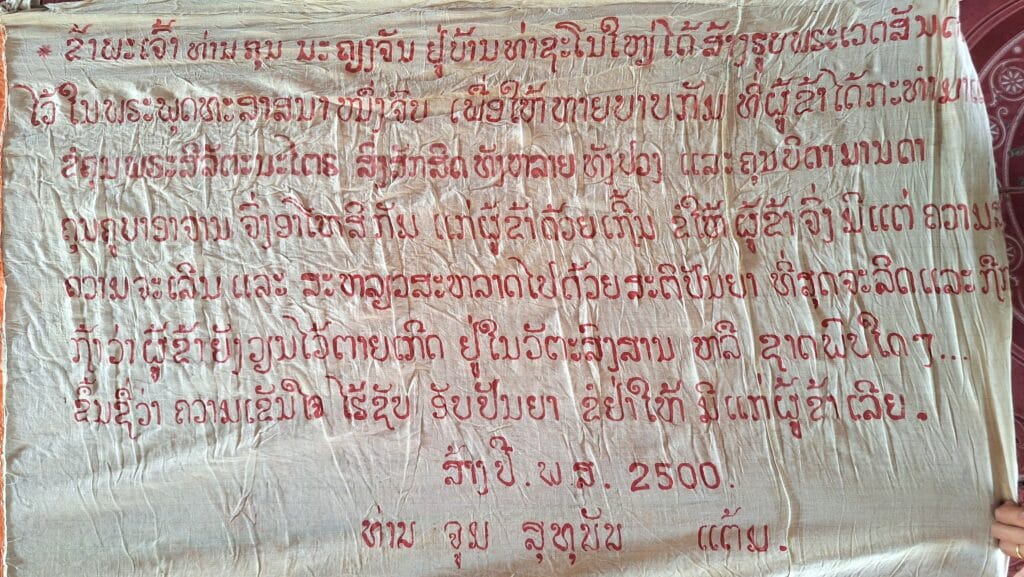 * ຂ້າພະເຈົ້າ ທ່ານ ຄຸນ ມະຄຽງຈັນ ຢູ່ບ້ານທ່າຊະໂນໃຫຽ່ໄດ້ ສ້າງຮູບພຣະເວດສັນດ
ໄວ້ ໃນພຣະພຸດທະສາສນາ ໜຶ່ງຈືນ ເພື່ອໃຫ້ຫາຍບາບກັມ ທີ່ຜູ້ຂ້າໄດ້ກະທຳມາ
ຂໍຄຸນພຣະສີລັຕະນະໄຕຣ ສິ່ງສັກສິດ ທັງຫລາຍ ທັງປວງ ແລະຄຸນບິດາ ມານດາ
ຄຸນຄູບາອາຈານ ຈົ່ງອາໂຫສິກັມ ແກ່ຜູ້ຂ້າດ້ວຍເຖີ້ນ ຂໍໃຫ້ ຜູ້ຂ້າຈົ່ງ ມີແຕ່ ຄວາມ
ຄວາມຈະເລີນ ແລະ ສະຫລຽວສະຫລາດໄປດ້ວຍ ສະຕິປັນຍາ ທີ່ສຸດຈະລິດແລະ
ຖ້າວ່າ ຜູ້ຂ້າຍັງວຽນໄວ້ຕາຍເກີດ ຢູ່ໃນວັຕະສົງສານ ຫລື ຊາດພົບໃດໆ...
ຂຶ້ນຊື່ວ່າ ຄວາມເຂັນໃຈ ໄຮ້ຊັບ ອັບປັນຍາ ຂໍຢ່າໃຫ້ ມີແກ່ຜູ້ຂ້າ ເລີຍ.
ສ້າງປີ. ພ.ສ. 2500.
ທ່ານ ຈູມ ສຸທຸນັນ ແຕ້ມ.